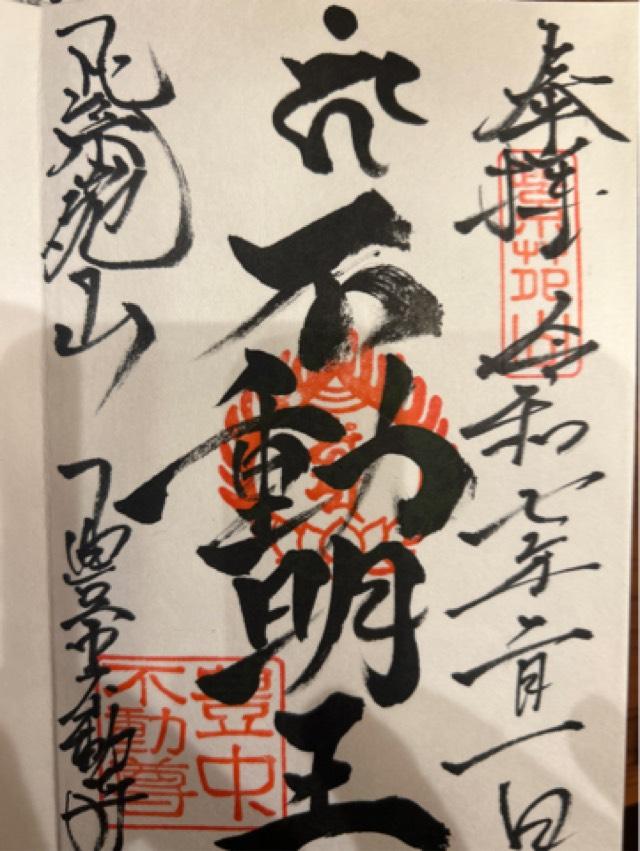 奉拝
令和七年二月一日
不動明王
紫苑山
豊中不動尊
紫苑山
豊中
不動尊